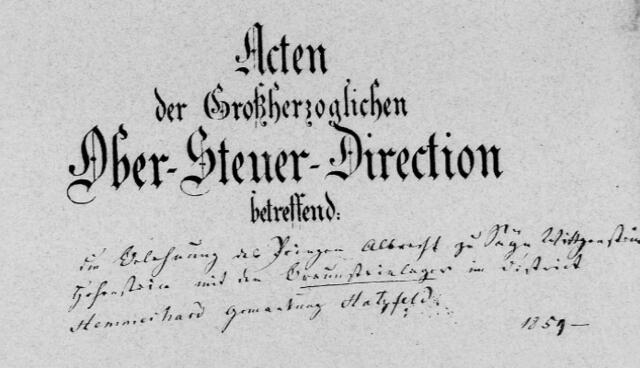 Acten
der Großherzoglichen
Ober-Steuer-Direction
betreffend:
die Belehnung des Prinzen Albrecht zu Sayn Wittgenstein
Hohenstein mit den Braunsteinlager im District
Hemmerhard Gemarkung Hatzfeld.
1859 –